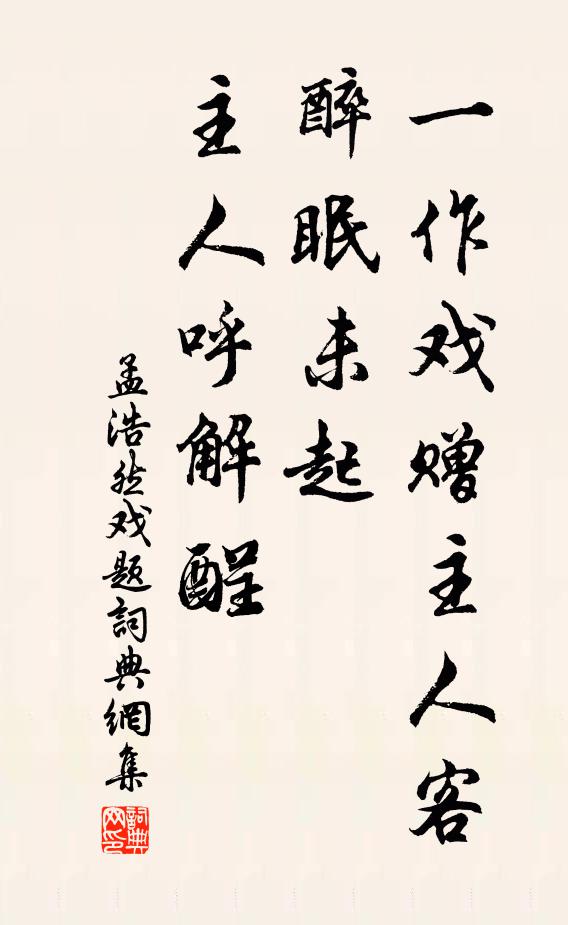 一作戏赠主人客
醉眠未起
主人呼解酲
孟浩然戏题詞典網集
詞典网印